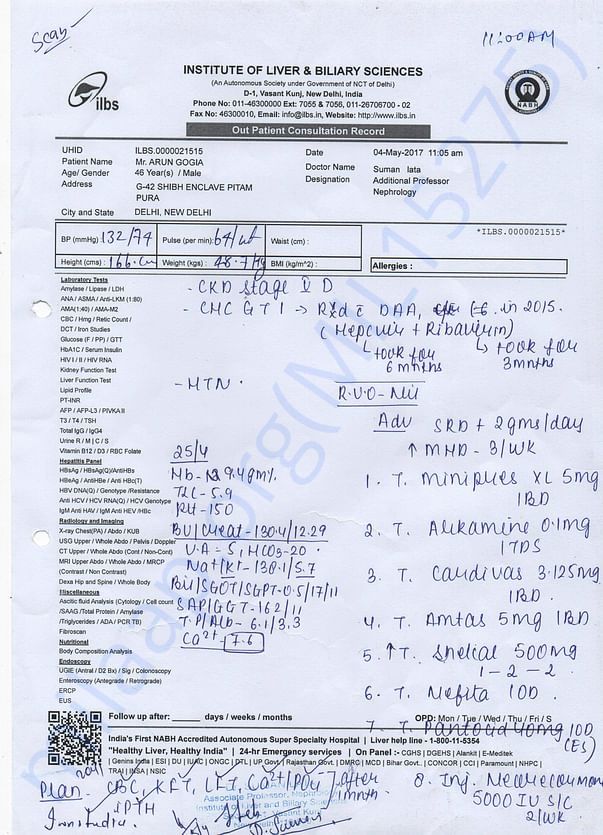 Scan
11:00AM
ilbs
INSTITUTE OF LIVER & BILIARY SCIENCES
(An Autonomous Society under Government of NCT of Delhi)
D-1, Vasant Kunj, New Delhi, India
Phone No: 011-46300000 Ext: 7055 & 7056, 011-26706700 - 02
Fax No: 46300010, Email: info@ilbs.in, Website: http://www.ilbs.in
NABH
Out Patient Consultation Record
UHID ILBS.0000021515 Date 04-May-2017 11:05 am
Patient Name Mr. ARUN GOGIA Doctor Name Suman lata
Age/ Gender 46 Year(s) / Male Designation Additional Professor
Address G-42 SHIBH ENCLAVE PITAM Nephrology
PURA
City and State DELHI, NEW DELHI
*ILBS.0000021515*
BP (mmHg) 132/74 Pulse (per min): 64/ Waist (cm) :
Height (cms) : 166.cm Weight (kgs) : 48.7 Kg BMI (kg/m2) : Allergies :
Laboratory Tests
Amylase / Lipase / LDH
ANA / ASMA / Anti-LKM (1:80)
AMA(1:40) / AMA-M2
CBC / Hmg / Retic Count /
DCT / Iron Studies
Glucose (F / PP) / GTT
HbA1C / Serum Insulin
HIV I / II / HIV RNA
Kidney Function Test
Liver Function Test
Lipid Profile
PT-INR
AFP / AFP-L3 / PIVKA II
T3 / T4 / TSH
Total IgG / IgG4
Urine R / M | C / S
Vitamin B12 / D3 / RBC Folate
Hepatitis Panel
HBsAg / HBsAg(Q)/AntiHBs
HBeAg / AntiHBe / Anti HBc(T)
HBV DNA(Q) / Genotype /Resistance
Anti HCV / HCV RNA(Q) / HCV Genotype
IgM Anti HAV / IgM Anti HEV /HBc
Radiology and Imaging
X-ray Chest(PA) / Abdo / KUB
USG Upper / Whole Abdo / Pelvis / Doppler
CT Upper / Whole Abdo (Cont / Non-Cont)
MRI Upper Abdo / Whole Abdo / MRCP
(Contrast / Non Contrast)
Dexa Hip and Spine / Whole Body
Miscellaneous
Ascitic fluid Analysis (Cytology / Cell count
/SAAG /Total Protein / Amylase
/Triglycerides / ADA / PCR TB)
Fibroscan
Nutritional
Body Composition Analysis
Endoscopy
UGIE (Antral / D2 Bx) / Sig / Colonoscopy
Enteroscopy (Antegrade / Retrograde)
ERCP
EUS
- CKD Stage V D
- CHC GT1 → Rxd c DAA, in 2015.
(Hepcvir + Ribavirin)
↳ took for 6 months
↳ took for 3 months
- HTN.
R.U.O - Nil
25/4
Hb - 9.4 gm%
TLC - 5.9
Plt - 150
BU/Creat - 130.4/12.29
U.A - 5, HCO3 - 20.
Na+/K+ - 138.1/5.7
Bil/SGOT/SGPT - 0.5/17/11
SAP/GGT - 162/11
T.P/Alb - 6.1/3.3
Ca2+ 7.6
Adv SRD + 2gms/day
↑ MHD - 3/WK
1. T. Minipres XL 5mg
1BD
2. T. Alkamine 0.1mg
1TDS
3. T. Cardivas 3.125mg
1BD.
4. T. Amtas 5mg 1BD
5. ↑T. Shelcal 500mg
1-2-2
6. T. Nefita 1OD.
7. T. Pantocid 40mg 1OD
(ES)
8. Inj.
5000 IU S/C
2/WK
Follow up after: ____ days / weeks / months OPD: Mon / Tue / Wed / Thu / Fri / S
India's First NABH Accredited Autonomous Super Specialty Hospital | Liver help line - 1-800-11-5354
"Healthy Liver, Healthy India" | 24-hr Emergency services | On Panel :- CGHS | DGEHS | Alankit | E-Meditek
| Genins India | ESI | DU | IUAC | ONGC | DTL | UP Govt | Rajasthan Govt | DMRC | MCD | Bihar Govt. | CONCOR | CCI | Paramount | NHPC |
TRAI | INSA | NSIC
Plan CBC, KFT, LFT, Ca2+/PO4 after
1 month
iPTH
Iron studies
Associate Professor, Nephrology
Institute of Liver and Biliary Sciences
Vasant Kunj